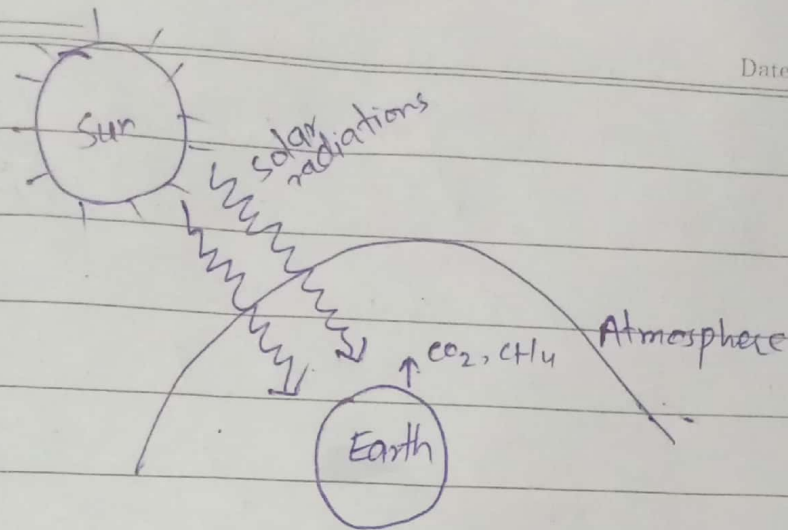 Date
Sun
solar
radiations
Atmosphere
CO2, CH4
Earth